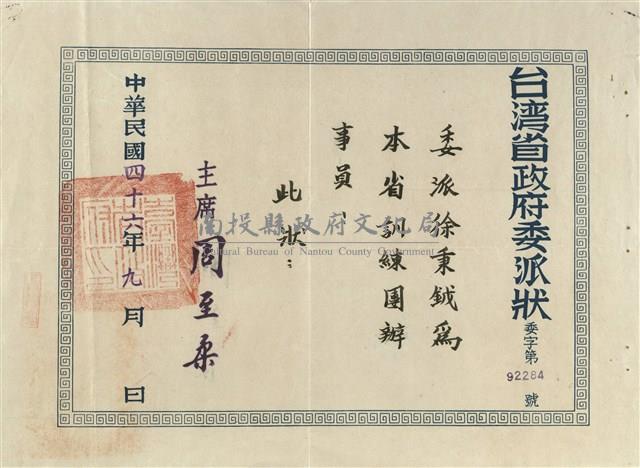 台湾省政府委派狀
委字第92284號
委派徐秉鉞為
本省訓練團辦
事員、
此狀：
主席周至柔
中華民國四十六年九月 日
南投縣政府文化局
Cultural Bureau of Nantou County Government